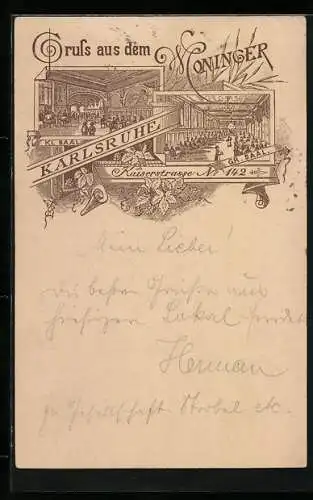 Gruss aus dem Moninger
KL. SAAL
KARLSRUHE.
GR. SAAL
Kaiserstrasse No 142
Mein Lieber!
Die besten Grüße aus
hiesigen Lokal sendet
Herman
Gesellschaft Strobel etc.